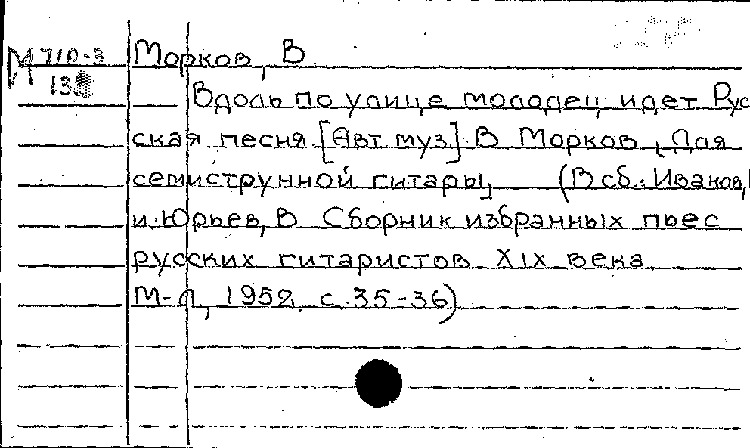 М 710-3 Морков, В
13
— Вдоль по улице молодец идет Рус
ская песня. [Авт муз]. В Морков, Для
семиструнной гитары, (В сб.: Иванов,
и Юрьев, В Сборник избранных пьес
русских гитаристов XIX века
М-Л, 1952 с. 35-36)